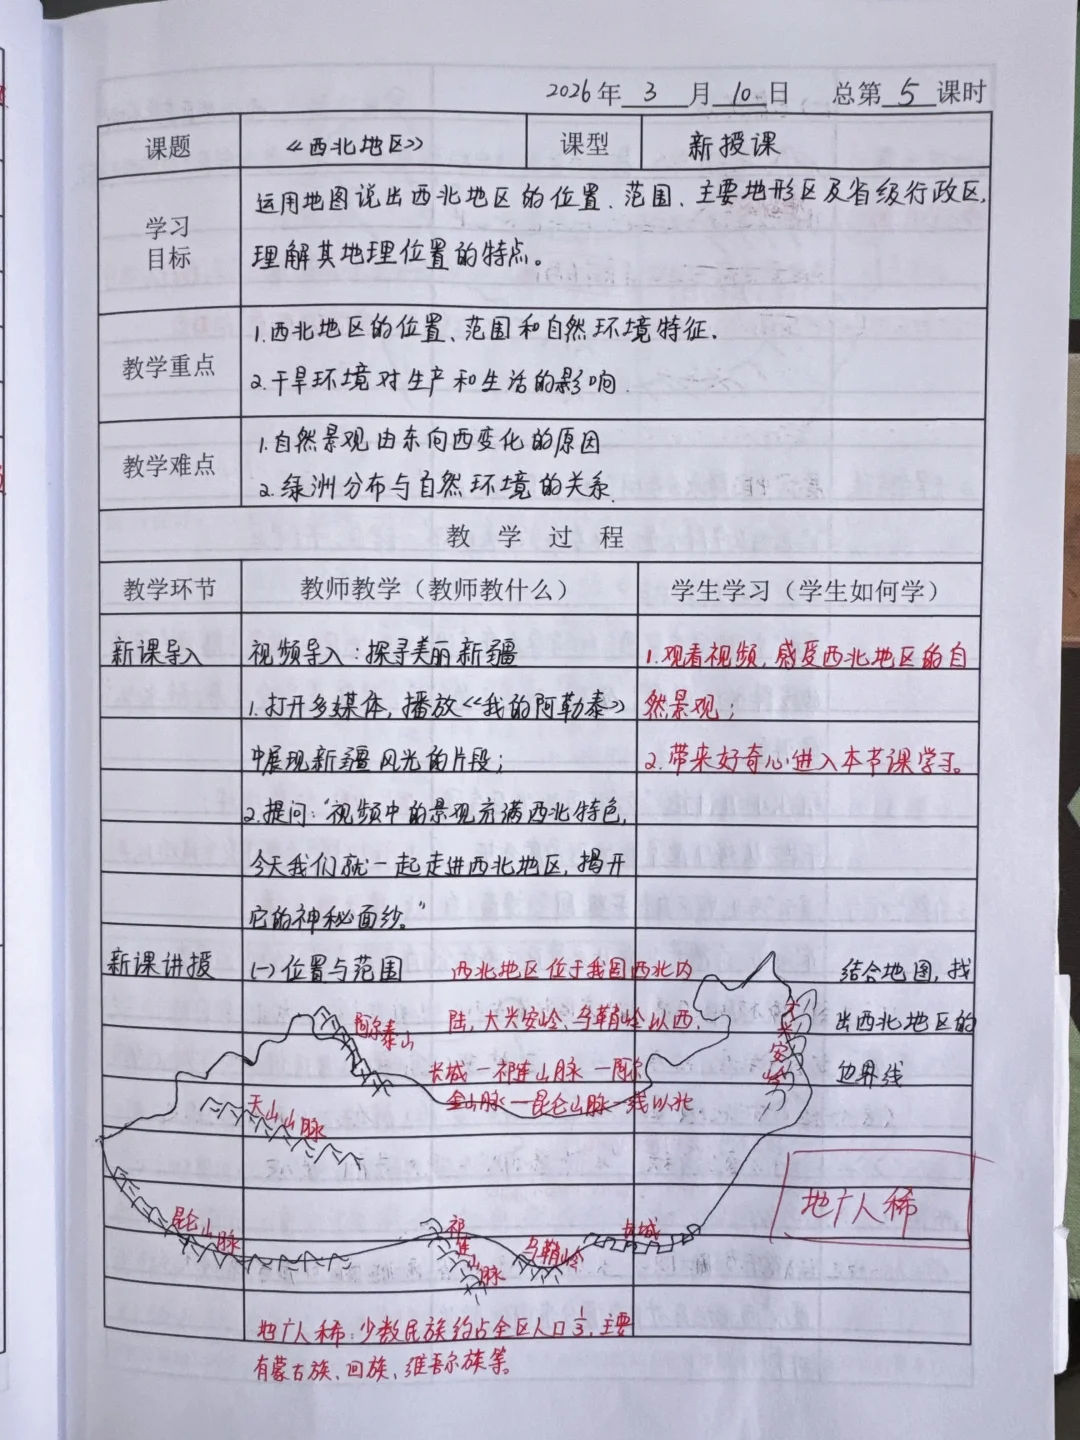 2026年 3 月 10 日 总第 5 课时
课题 《西北地区》 课型 新授课
学习目标
运用地图说出西北地区的位置、范围、主要地形区及省级行政区,
理解其地理位置的特点。
教学重点
1.西北地区的位置、范围和自然环境特征.
2.干旱环境对生产和生活的影响.
教学难点
1.自然景观由东向西变化的原因
2.绿洲分布与自然环境的关系.
教学过程
教学环节 教师教学（教师教什么） 学生学习（学生如何学）
新课导入
视频导入：探寻美丽新疆
1.打开多媒体,播放《我的阿勒泰》
中展现新疆风光的片段；
2.提问:“视频中的景观充满西北特色,
今天我们就一起走进西北地区,揭开
它的神秘面纱。”
1.观看视频,感受西北地区的自
然景观；
2.带来好奇心进入本节课学习。
新课讲授
(一)位置与范围
西北地区位于我国西北内
陆,大兴安岭、乌鞘岭以西,
长城一祁连山脉一阿尔
金山脉一昆仑山脉一线以北
结合地图,找
出西北地区的
边界线
阿尔泰山
天山山脉
昆仑山脉
祁连山脉
乌鞘岭
长城
大兴安岭
地广人稀
地广人稀:少数民族约占全区人口1/3,主要
有蒙古族、回族、维吾尔族等。